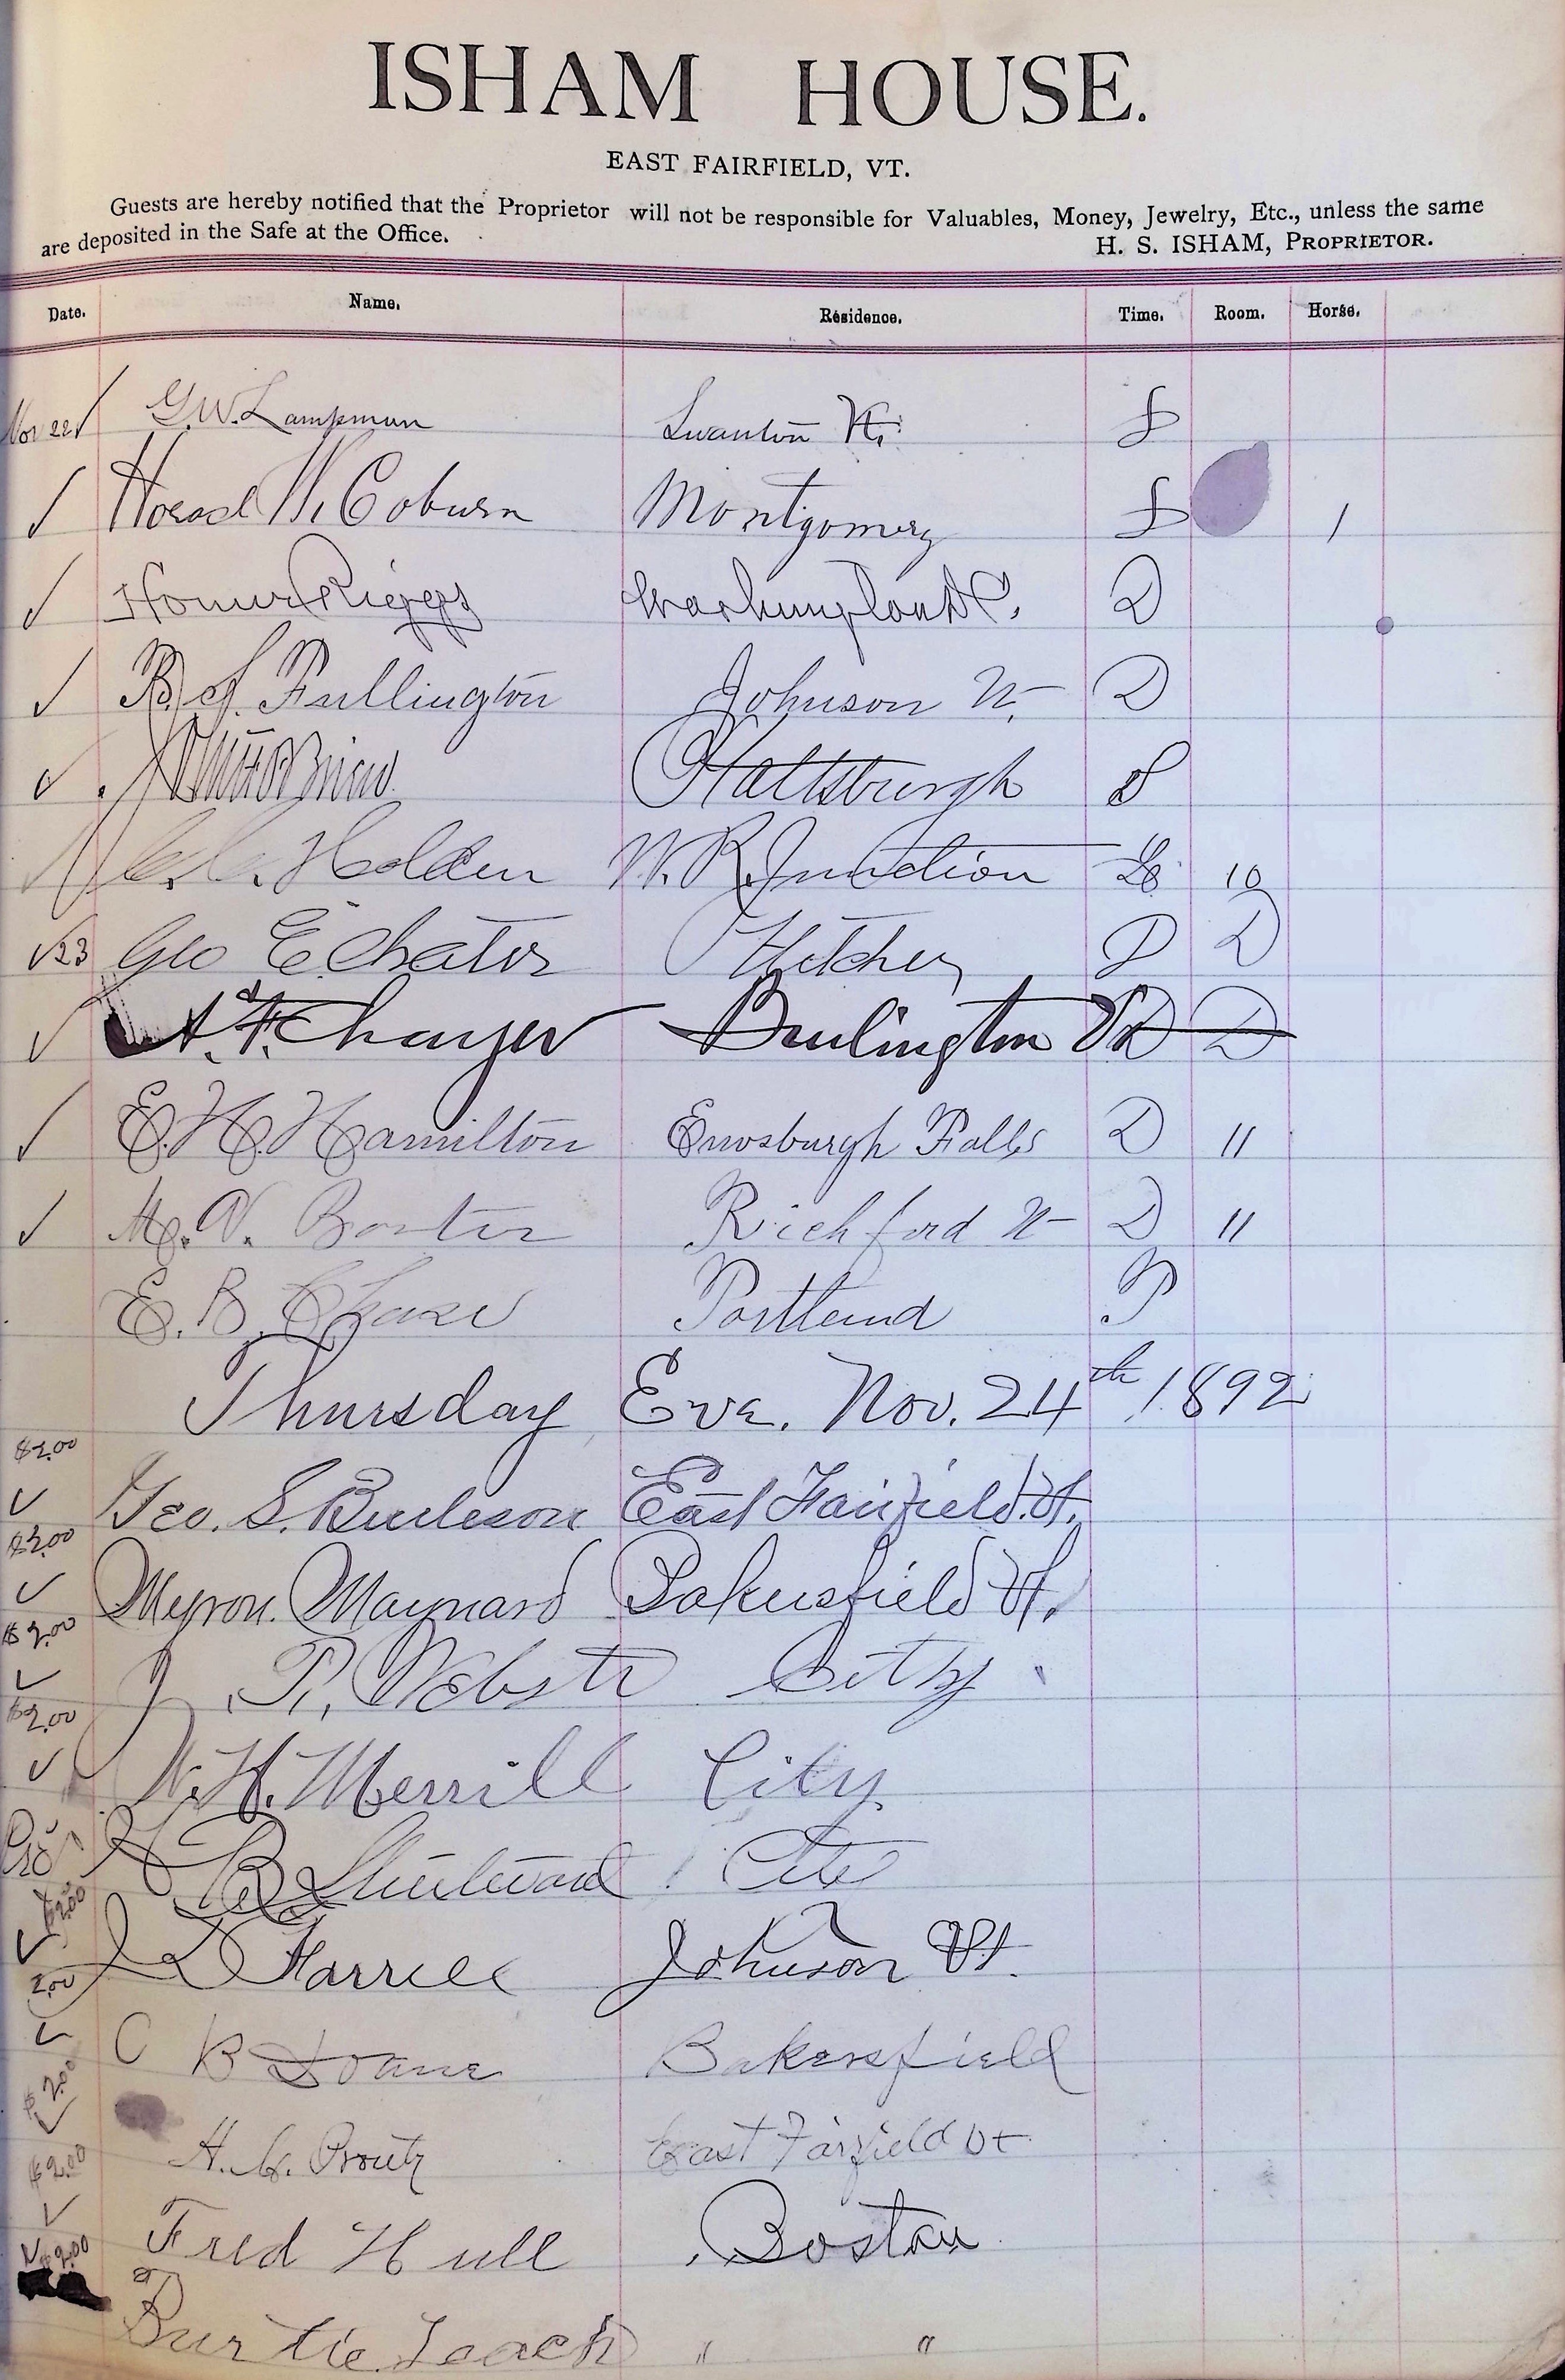 ISHAM HOUSE.
EAST FAIRFIELD, VT.
Guests are hereby notified that the Proprietor will not be responsible for Valuables, Money, Jewelry, Etc., unless the same
are deposited in the Safe at the Office.
H. S. ISHAM, PROPRIETOR.
Date. Name. Residence. Time. Room. Horse.
Nov 22 G.W. Lampman Swanton Vt.
W. Coburn Montgomery 1
Homer Riggs Washington D.C. D
B. S. Fullington Johnson Vt. D
O'Brien Plattsburgh S
C. C. Holden W. R. Junction 10
23 Geo E. Chater D D
A. F. Burlington Vt D D
E. H. Hamilton Enosburgh Falls D 11
Richford Vt D 11
E. B. Chase Portland
Thursday Eve. Nov. 24th 1892
$2.00
Geo. S. Burleson East Fairfield. Vt.
$2.00
Myron. Maynard Bakersfield Vt.
$2.00
J. P. Webster City
$2.00
W. H. Merrill City.
$2.00
J D Farrell Johnson Vt.
2.00
C B Doane Bakersfield
$2.00
H. Prouty East Fairfield Vt
$2.00
Fred Hull Boston
$2.00
Burtie Leach " "